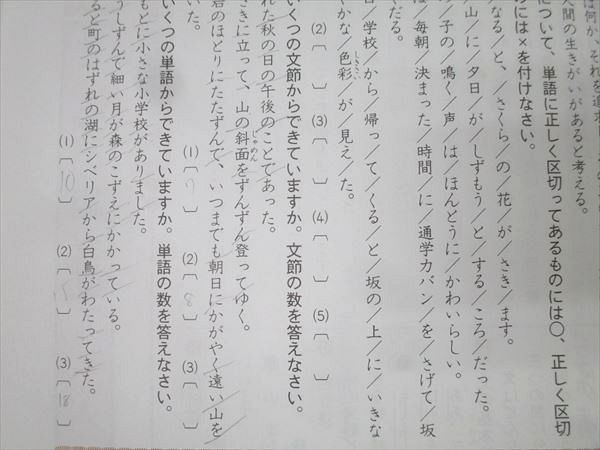 は何か、それを追求
人間の生きがいがあると考える。
について、単語に正しく区切ってあるものには○、正しく区切
のには×を付けなさい。
なる／と、／さくら／の／花／が／さき／ます。
山／に／夕日／が／しずもう／と／する／ころ／だった。
／子／の／鳴く／声／は／ほんとうに／かわいらしい。
は／毎朝／決まった／時間／に／通学カバン／を／さげて／坂
だる。
日／学校／から／帰っ／て／くる／と／坂の／上／に／いきな
やかな／色彩／が／見え／た。
しきさい
(2)〔 〕 (3)〔 〕 (4)〔 〕 (5)〔 〕
いくつの文節からできていますか。文節の数を答えなさい。
れた秋の日の午後のことであった。
さきに立って、山の斜面をずんずん登ってゆく。
しゃめん
岩のほとりにたたずんで、いつまでも朝日にかがやく遠い山を
いた。
(1)〔 〕 (2)〔8〕 (3)〔 〕
いくつの単語からできていますか。単語の数を答えなさい。
もとに小さな小学校がありました。
うしずんで細い月が森のこずえにかかっている。
ると町のはずれの湖にシベリアから白鳥がわたってきた。
(1)〔10〕 (2)〔 〕 (3)〔18〕